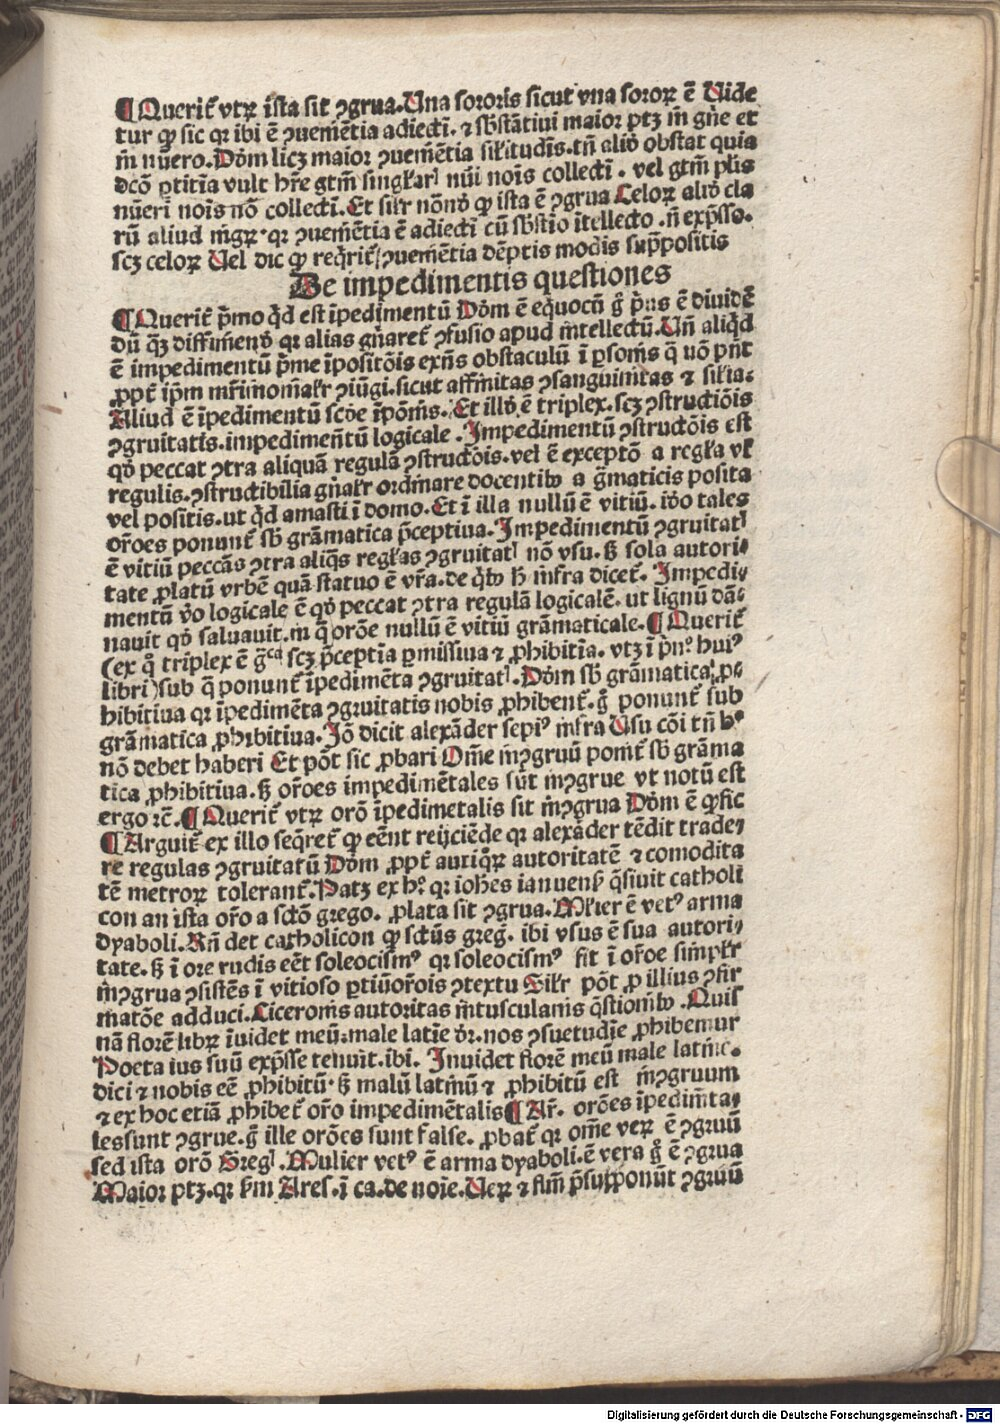 ¶Querit᷑ vtꝝ ista sit ꝯgrua.Una sororis sicut vna soroꝝ ē Uide
tur ꝙ sic qꝛ ibi ē ꝯueniētia adiecti. ⁊ sb̄stātiui maior ptꝫ in gn̄e et
in nūero.Dōm licꝫ maior ꝯueniētia silitudis.tn̄ aliō obstat quia
dcō ꝑtitīa vult hr̄e gtm̄ singl'ar nūi nois collecti . vel gtm̄ plis
nūeri nois nō collecti.Et silr nōnō ꝙ ista ē ꝯgrua Celoꝝ aliō cla
rū aliud mgꝝ.qꝛ ꝯueniētia ē adiecti cū sb̄stīo ītellecto .n̄ exp̄sso.
scꝫ celoꝝ Uel dic ꝙ reqrit᷑/ꝯueniētia dēptis modis sup̄positis
De impedimentis questiones
¶Querit᷑ p̄mo qd̄ est īpedimentū Dōm ē eq̄uocū ḡ p̄us ē diuidē
dū q̄ꝫ diffiniēd̄ qꝛ alias gn̄aret᷑ ꝯfusio apud intellectū.Un̄ aliqd̄
ē impedimentū p̄me īpositōis exn̄s obstaculū ī ꝑsonis q̄ nō pn̄t
ꝓpt᷑ ip̄m mr̄imonialr ꝯiūgi.sicut affinitas ꝯsanguinitas ⁊ silia.
Aliud ē īpedimentū scd̄e īpōnis. Et illd̄ ē triplex.scꝫ ꝯstructiōis
ꝯgruitatis.impedimentū logicale .Impedimentū ꝯstructōis est
qd̄ peccat ꝯtra aliquā regulā ꝯstructōis.vel ē exceptō a regl'a vl'
regulis.ꝯstructibilia gn̄alr ordinare docentib᷒ a grāmaticis posita
vel positis.ut qd̄ amasti ī domo.Et ī illa nullū ē vitiū. iō tales
or̄oes ponunt᷑ sb̄ grāmatica p̄ceptiua.Impedimentū ꝯgruitat
ē vitiū peccās ꝯtra aliq̄s regl'as ꝯgruitat nō vsu. sꝫ sola autori/
tate ꝓlatū vrbē quā statuo ē vr̄a.de qb᷒ h̄ infra dicet᷑. Impedi/
mentū v̄o logicale ē qd̄ peccat ꝯtra regulā logicalē. ut lignū dā/
nauit qd̄ saluauit.in q̄ orōe nullū ē vitiū grāmaticale.¶Querit᷑
(ex q̊ triplex ē gᷓca scꝫ p̄ceptīa ꝑmissiua ⁊ ꝓhibitīa. vtꝫ ī p̄n° huiꝰ
libri)sub q̄ ponunt᷑ īpedimēta ꝯgruitat. Dōm sb̄ grāmatica ꝓ/
hibitiua qꝛ īpedimēta ꝯgruitatis nobis ꝓhibent᷑. g̊ ponunt᷑ sub
grāmatica ꝓhibitiua.Iō dicit alexāder sepiꝰ infra Usu cōi tn̄ h°
nō debet haberi Et pōt sic ꝓbari Om̄e inꝯgruū ponit᷑ sb̄ grāma
tica ꝓhibitiua.sꝫ or̄oes impedimētales sūt inꝯgrue vt notū est
ergo ꝛc̄.¶Querit᷑ vtꝝ orō īpedimetalis sit inꝯgrua Dōm ē ꝙ sic
¶Arguit᷑ ex illo seq̄ret᷑ ꝙ eēnt reijciēde qꝛ alexāder tēdit trade/
re regulas ꝯgruitatū Dōm ꝓpt᷑ antiq̄ꝝ autoritatē ⁊ comodita
tē metroꝝ tolerant᷑.Patꝫ ex h°.qꝛ ioh̄es ianuens̄ q̄siuit catholi
con an ista or̄o a sctō grego. ꝓlata sit ꝯgrua.Ml'ier ē vetꝰ arma
dyaboli.Rn̄det catholicon ꝙ sctūs greg. ibi vsus ē sua autori/
tate.sꝫ ī ore rudis eēt soleocismꝰ qꝛ soleocismꝰ fit ī or̄oe simplr
inꝯgrua ꝯsistēs ī vitioso ꝑtiū or̄ois ꝯtextu Silr pōt ꝓ illius ꝯfir
matōe adduci.Ciceronis autoritas in tusculanis q̄stionib᷒ .Quis
nā florē librꝝ īuidet meū.male latīe dr̄.nos ꝯsuetudīe ꝓhibemur
Poeta ius suū exp̄sse tenuit.ibi. Inuidet florē meū male latine.
dici ⁊ nobis eē ꝓhibitū.sꝫ malū latinū ⁊ ꝓhibitū est inꝯgruum
⁊ ex hoc etiā ꝓhibet᷑ or̄o impedimētalis¶Ar̄. orōes īpedimta/
les sunt ꝯgrue.g̊ ille orōes sunt false. ꝓbat᷑ qꝛ om̄e veꝝ ē ꝯgruū
sed ista orō Greg .Mulier vetꝰ ē arma dyaboli.ē vera g̊ ē ꝯgrua
Maior ptꝫ.qꝛ scd̄m Ares.ī ca.de noīe.Ueꝝ ⁊ flm̄ p̄supponūt ꝯgruū
Digitalisierung gefördert durch die Deutsche Forschungsgemeinschaft - DFG